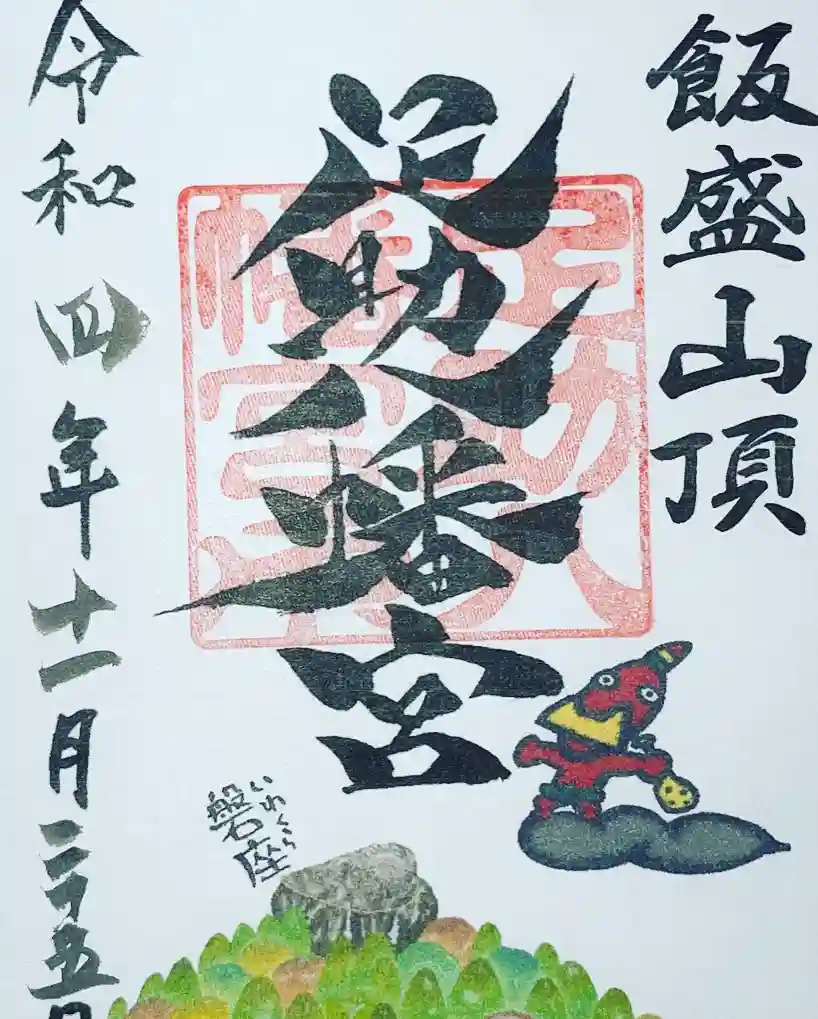 飯盛山頂
足助八幡宮
令和四年十一月二十五日
いわくら
磐座